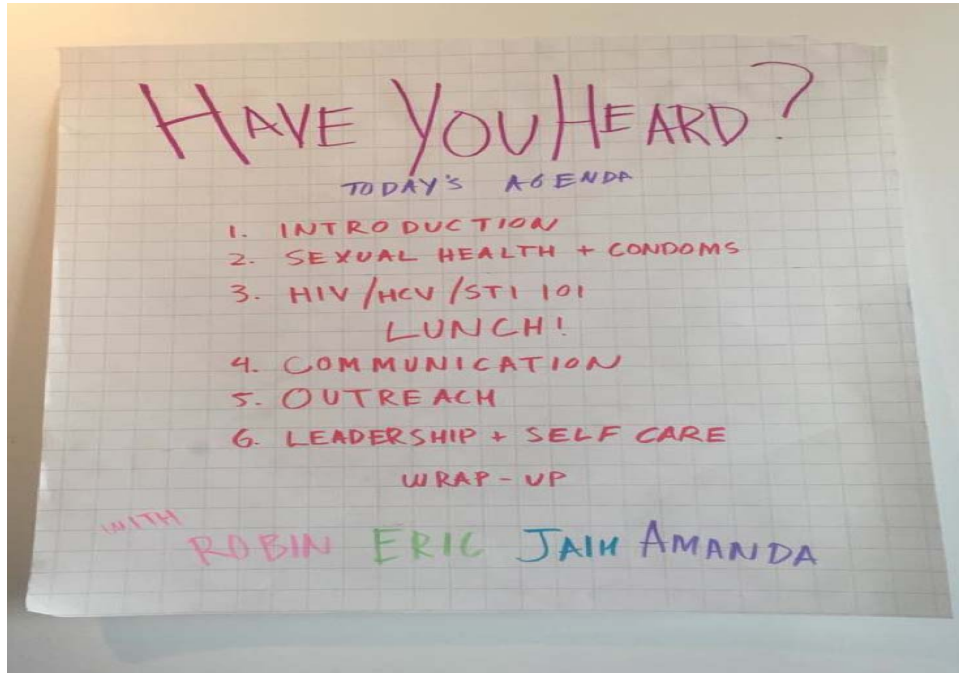 HAVE YOU HEARD?
TODAY'S AGENDA
1. INTRODUCTION
2. SEXUAL HEALTH + CONDOMS
3. HIV/HCV/STI 101
LUNCH!
4. COMMUNICATION
5. OUTREACH
6. LEADERSHIP + SELF CARE
WRAP-UP
WITH
ROBIN ERIC JAIH AMANDA